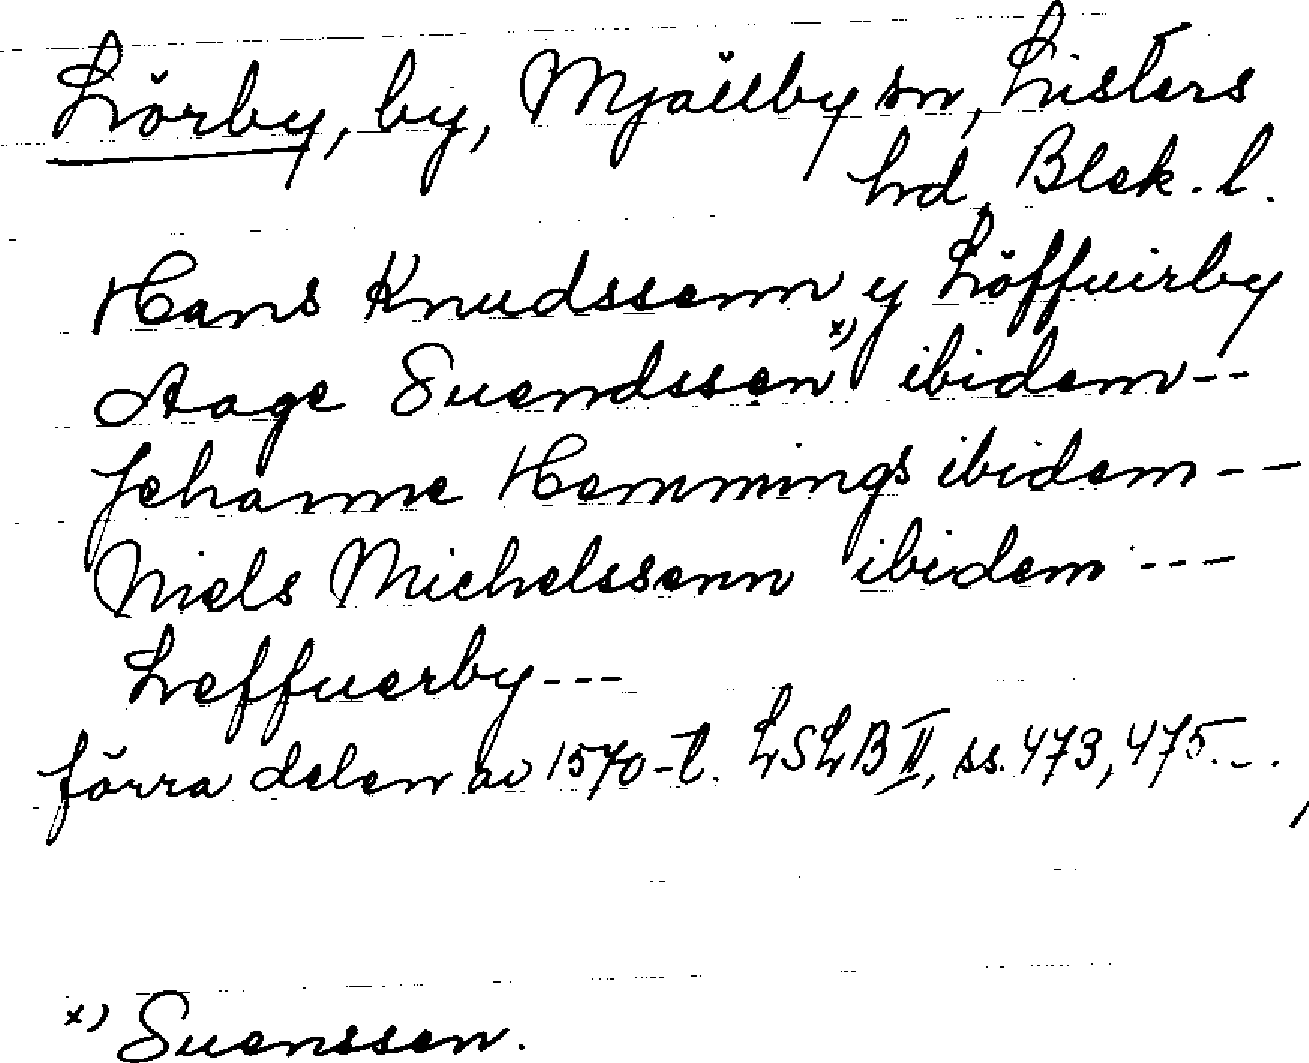 Lörby, by, Mjällby sn, Listers
hd, Blek. l.
Hans Knudssenn y Löffuirby
Aage Suendssen x) ibidem--
Jehanne Hemmings ibidem--
Niels Michelssenn ibidem---
Leffuerby---
förra delen av 1570-t. LSLB II, ss. 473, 475.-.
x) Suenssen.